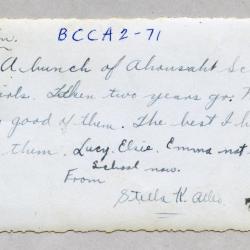 m.
BCCA2-71
A bunch of Ahousaht Sc
irls. Taken two years go.
good of them. The best I h
them. Lucy. Elsie. Emma not
School now.
From
Stella K.